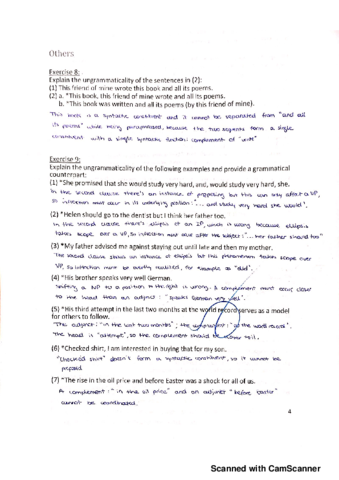 Others
Exercise 8:
Explain the ungrammaticality of the sentences in (2):
(1) This friend of mine wrote this book and all its poems.
(2) a. *This book, this friend of mine wrote and all its poems.
b. *This book was written and all its poems (by this friend of mine).
This book is a syntactic constituent and it cannot be separated from "and all
its poems" while being passivized, because the two segments form a single
constituent with a single syntactic function: complement of "write"
Exercise 9:
Explain the ungrammaticality of the following examples and provide a grammatical
counterpart:
(1) *She promised that she would study very hard, and, would study very hard, she.
In the second clause there's an instance of preposing but this can only affect a VP,
so inflection must occur in its underlying position: "... and study very hard she would".
(2) *Helen should go to the dentist but I think her father too.
In the second clause there's ellipsis of an IP, which is wrong because ellipsis
takes scope over a VP, so inflection must occur after the subject: "... her father should too"
(3) *My father advised me against staying out until late and then my mother.
The second clause shows an instance of ellipsis but this phenomenon takes scope over
VP, so inflection must be overtly realized, for example as "did".
(4) *His brother speaks very well German.
Shifting a NP to a position to the right is wrong. A complement must occur closer
to the head than an adjunct: "speaks German very well".
(5) *His third attempt in the last two months at the world record serves as a model
for others to follow.
The adjunct: "in the last two months"; the complement: "at the world record".
The head is "attempt", so the complement should be
(6) *Checked shirt, I am interested in buying that for my son.
"Checked shirt" doesn't form a syntactic constituent, so it cannot be
preposed
(7) *The rise in the oil price and before Easter was a shock for all of us.
A complement: "in the oil price" and an adjunct "before Easter"
cannot be coordinated.
4
Scanned with CamScanner